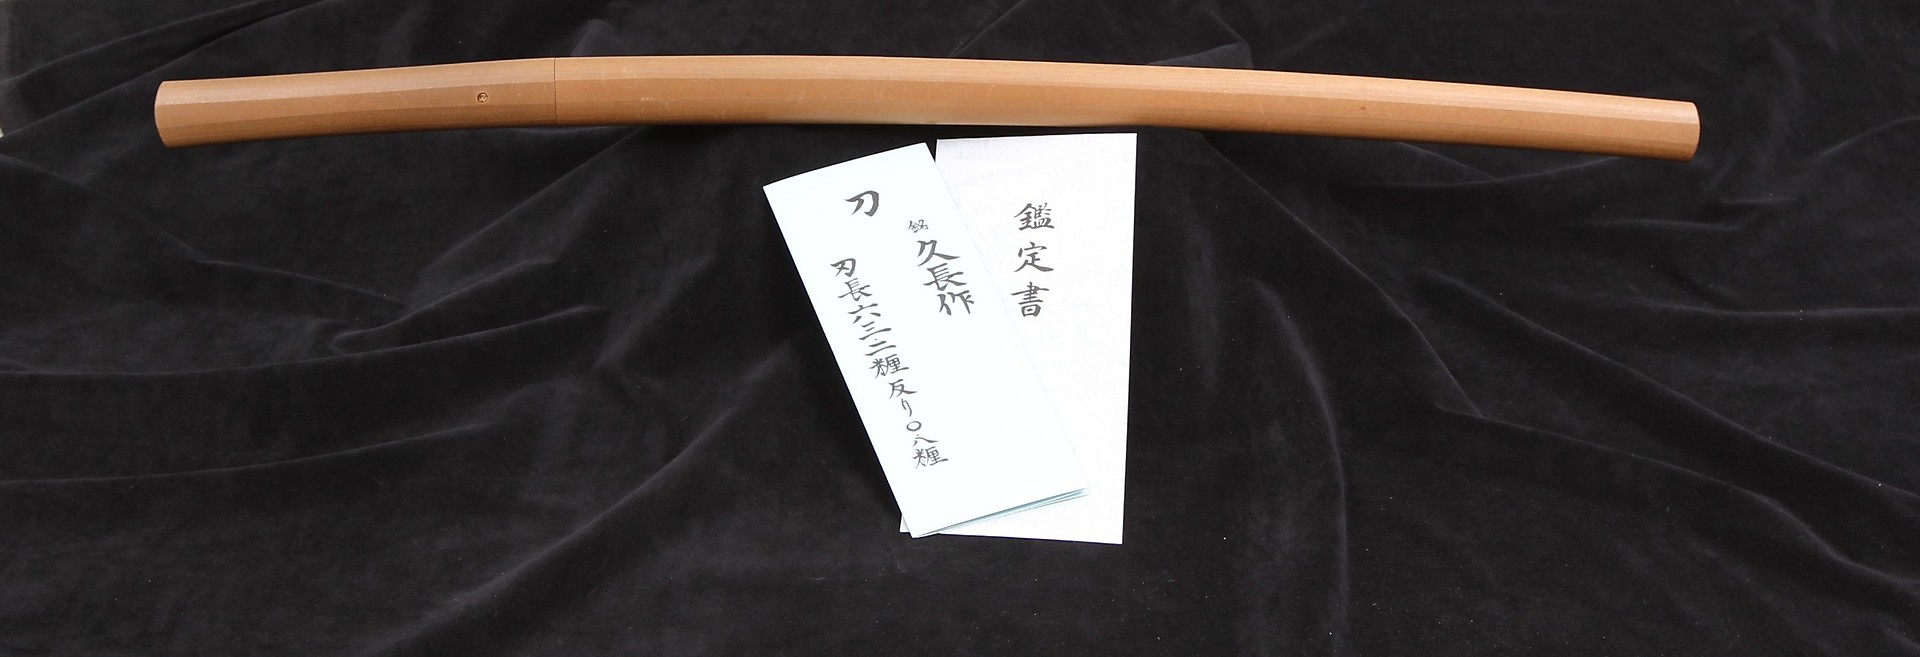 鑑定書
刀
銘 久長作
刃長六三.二糎 反り〇.八糎